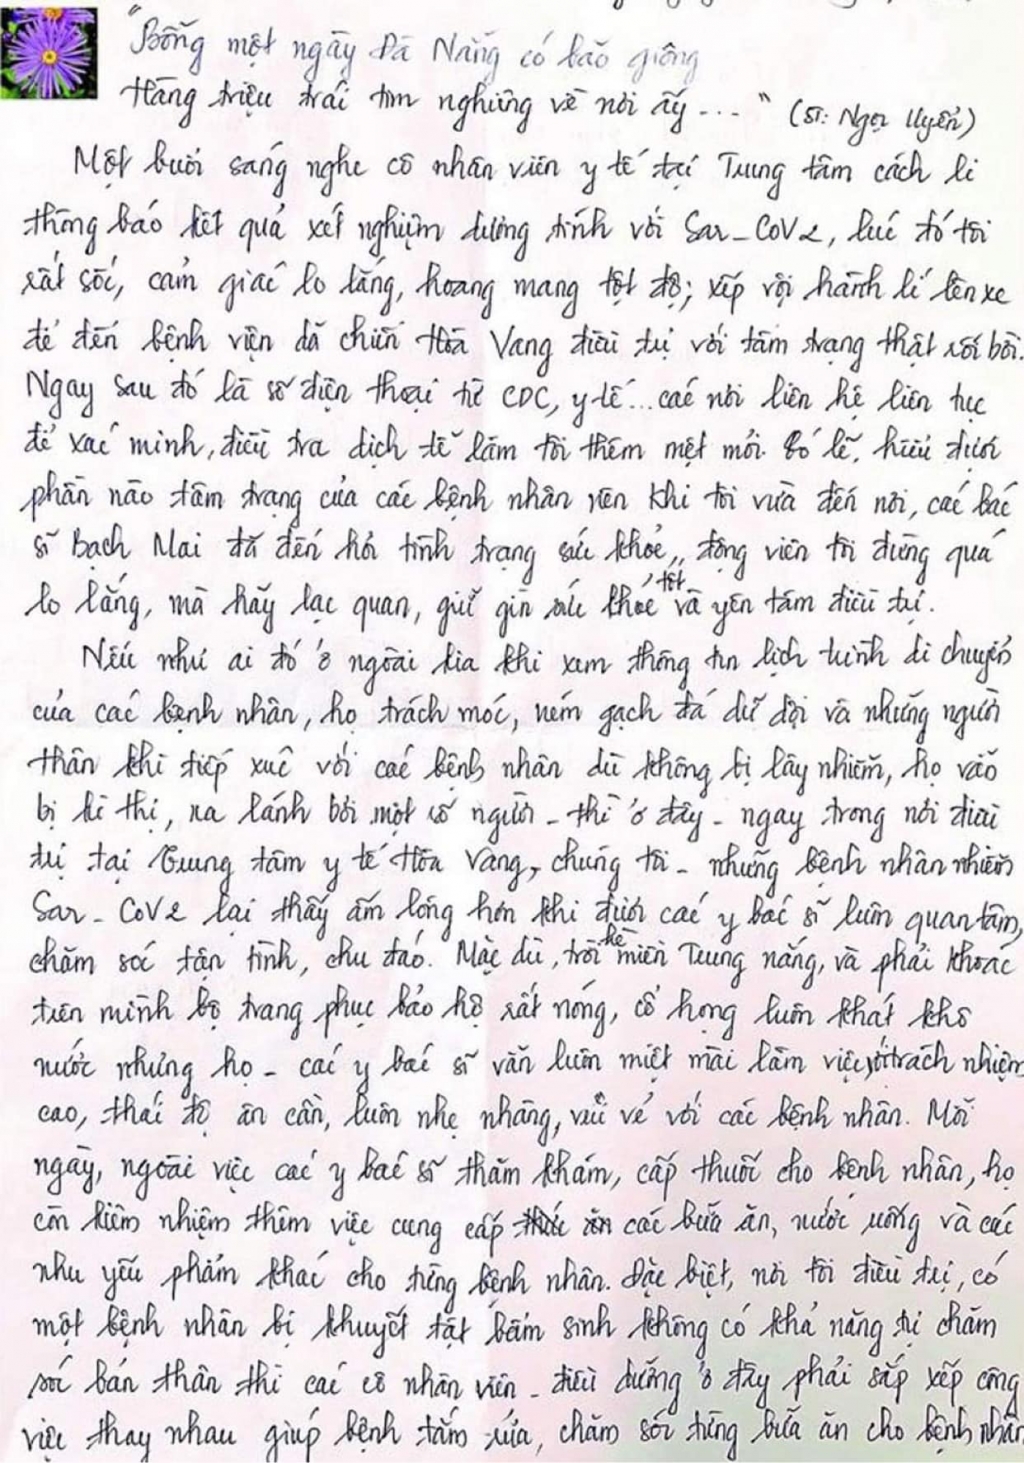 "Bỗng một ngày Đà Nẵng có bão giông
Hàng triệu trái tim nghiêng về nơi ấy..." (ST: Ngọc Uyển)
Một buổi sáng nghe cô nhân viên y tế tại Trung tâm cách li
thông báo kết quả xét nghiệm dương tính với Sar-CoV2, lúc đó tôi
rất sốc, cảm giác lo lắng, hoang mang tột độ; xếp vội hành lí lên xe
để đến bệnh viện dã chiến Hòa Vang điều trị với tâm trạng thật rối bời.
Ngay sau đó là số điện thoại từ CDC, y tế... các nơi liên hệ liên tục
để xác minh, điều tra dịch tễ làm tôi thêm mệt mỏi. Có lẽ, hiểu được
phần nào tâm trạng của các bệnh nhân nên khi tôi vừa đến nơi, các bác
sĩ Bạch Mai đã đến hỏi tình trạng sức khỏe, động viên tôi đừng quá
lo lắng, mà hãy lạc quan, giữ gìn sức khỏe tốt và yên tâm điều trị.
Nếu như ai đó ở ngoài kia khi xem thông tin lịch trình di chuyển
của các bệnh nhân, họ trách móc, ném gạch đá dữ dội và những người
thân khi tiếp xúc với các bệnh nhân dù không bị lây nhiễm, họ vẫn
bị kì thị, xa lánh bởi một số người - thì ở đây - ngay trong nơi điều
trị tại Trung tâm y tế Hòa Vang, chúng tôi - những bệnh nhân nhiễm
Sar-CoV2 lại thấy ấm lòng hơn khi được các y bác sĩ luôn quan tâm,
chăm sóc tận tình, chu đáo. Mặc dù, trời hè miền Trung nắng, và phải khoác
trên mình bộ trang phục bảo hộ rất nóng, cổ họng luôn khát khô
nước nhưng họ - các y bác sĩ vẫn luôn miệt mài làm việc với trách nhiệm
cao, thái độ ân cần, luôn nhẹ nhàng, vui vẻ với các bệnh nhân. Mỗi
ngày, ngoài việc các y bác sĩ thăm khám, cấp thuốc cho bệnh nhân, họ
còn kiêm nhiệm thêm việc cung cấp các bữa ăn, nước uống và các
nhu yếu phẩm khác cho từng bệnh nhân. Đặc biệt, nơi tôi điều trị, có
một bệnh nhân bị khuyết tật bẩm sinh không có khả năng tự chăm
sóc bản thân thì các cô nhân viên - điều dưỡng ở đây phải sắp xếp công
việc thay nhau giúp bệnh tắm rửa, chăm sóc từng bữa ăn cho bệnh nhân